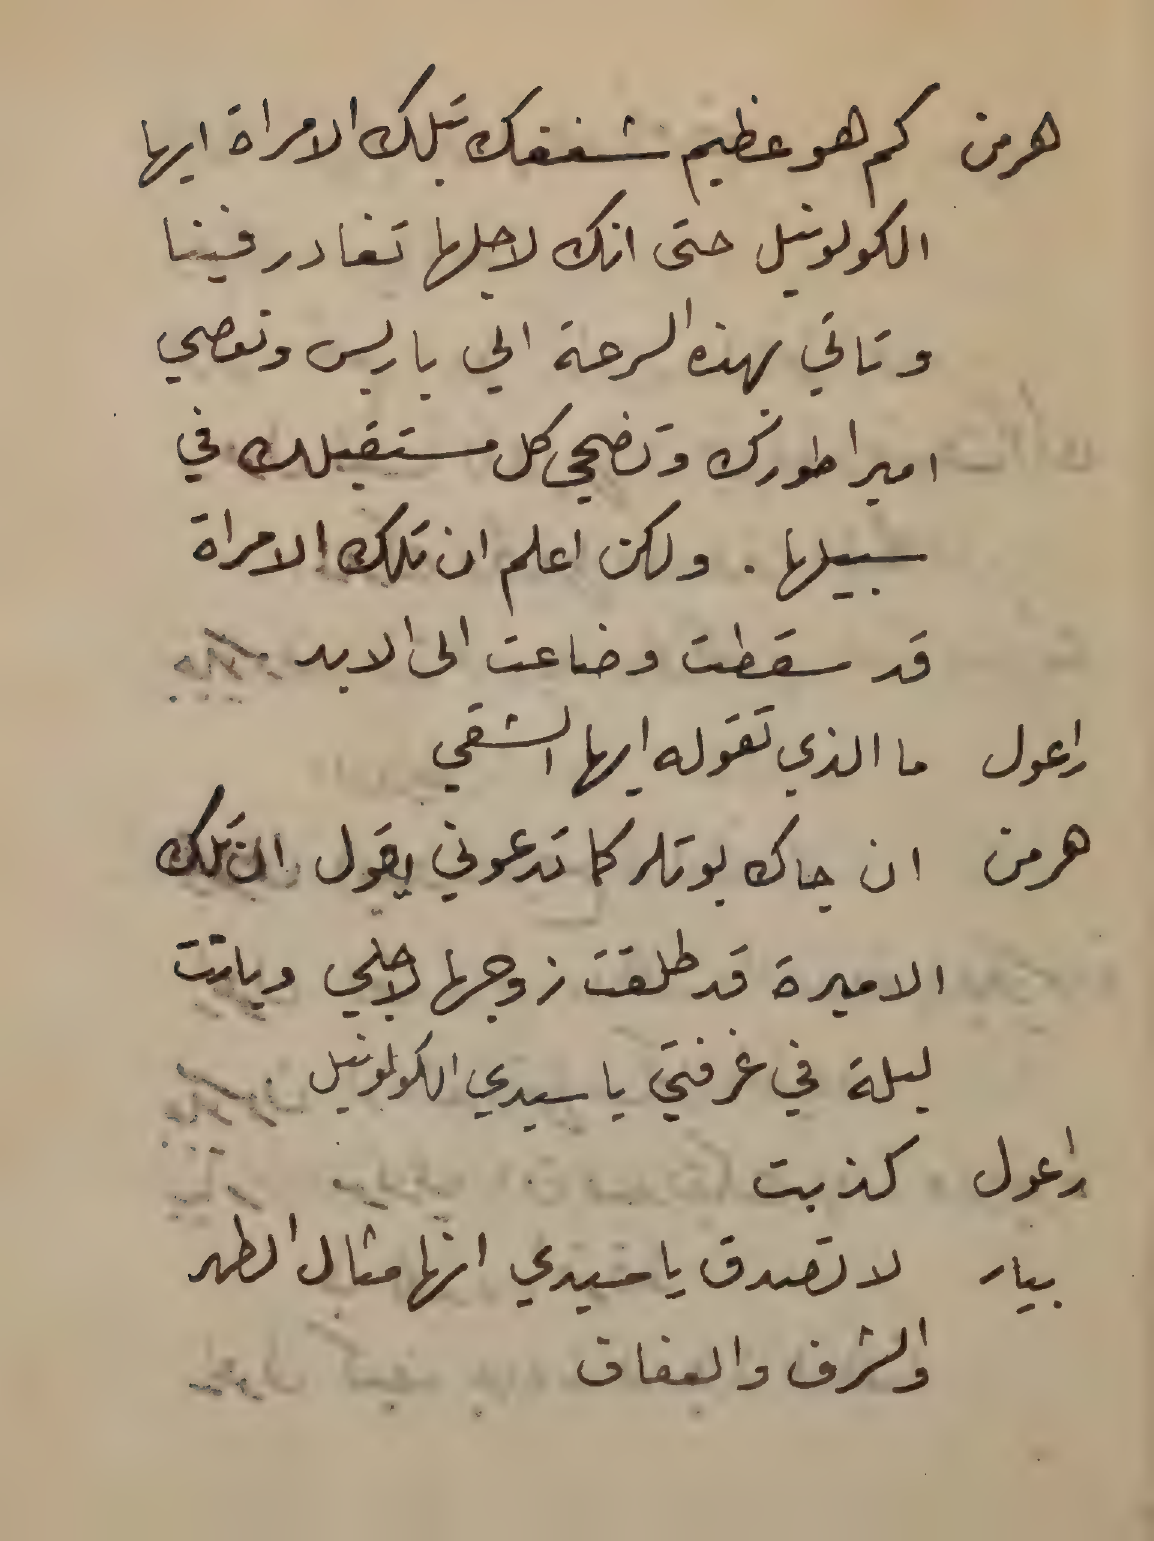 هرمن كم هو عظيم شغفك بتلك الامراة ايها
الكولونيل حتى انك لاجلها تغادر فينا
وتاتي بهذه السرعة الي باريس وتعصي
امبراطورك وتضحي كل مستقبلك في
سبيلها . ولكن اعلم ان تلك الامراة
قد سقطت وضاعت الى الابد
راعول ما الذي تقوله ايها الشقي
هرمن ان جاك بوتلر كما تدعوني يقول ان تلك
الاميرة قد طلقت زوجها لاجلي وباتت
ليلة في غرفتي يا سيدي الكولونيل
راعول كذبت
بيار لا تصدق يا سيدي انها مثال الطهر
والشرف والعفاف